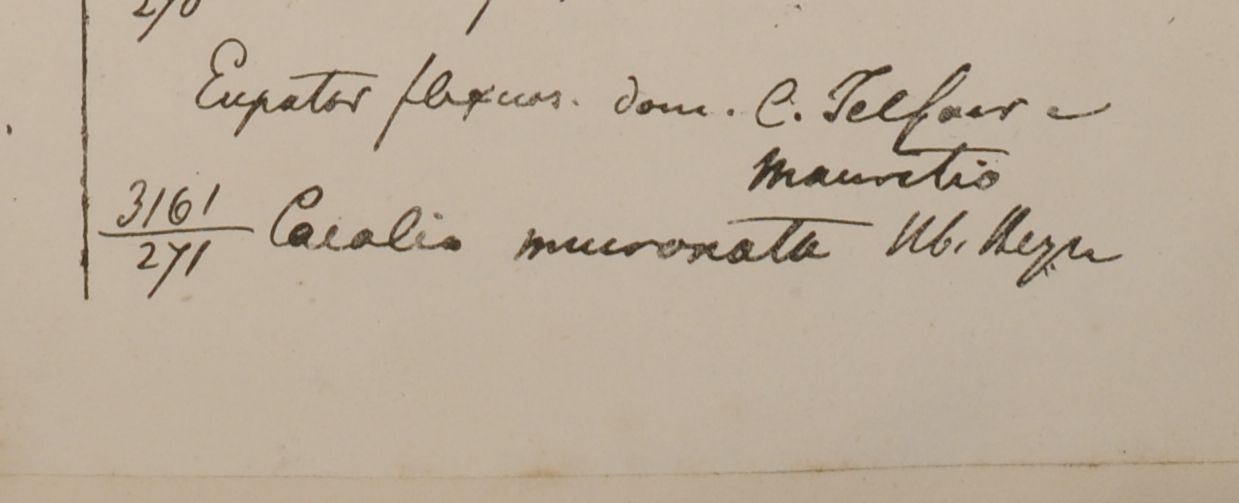 270
Eupator flexuos. dom. C. Telfair e
Mauritio
3161
271 Cacalia mucronata Hb. Heyn